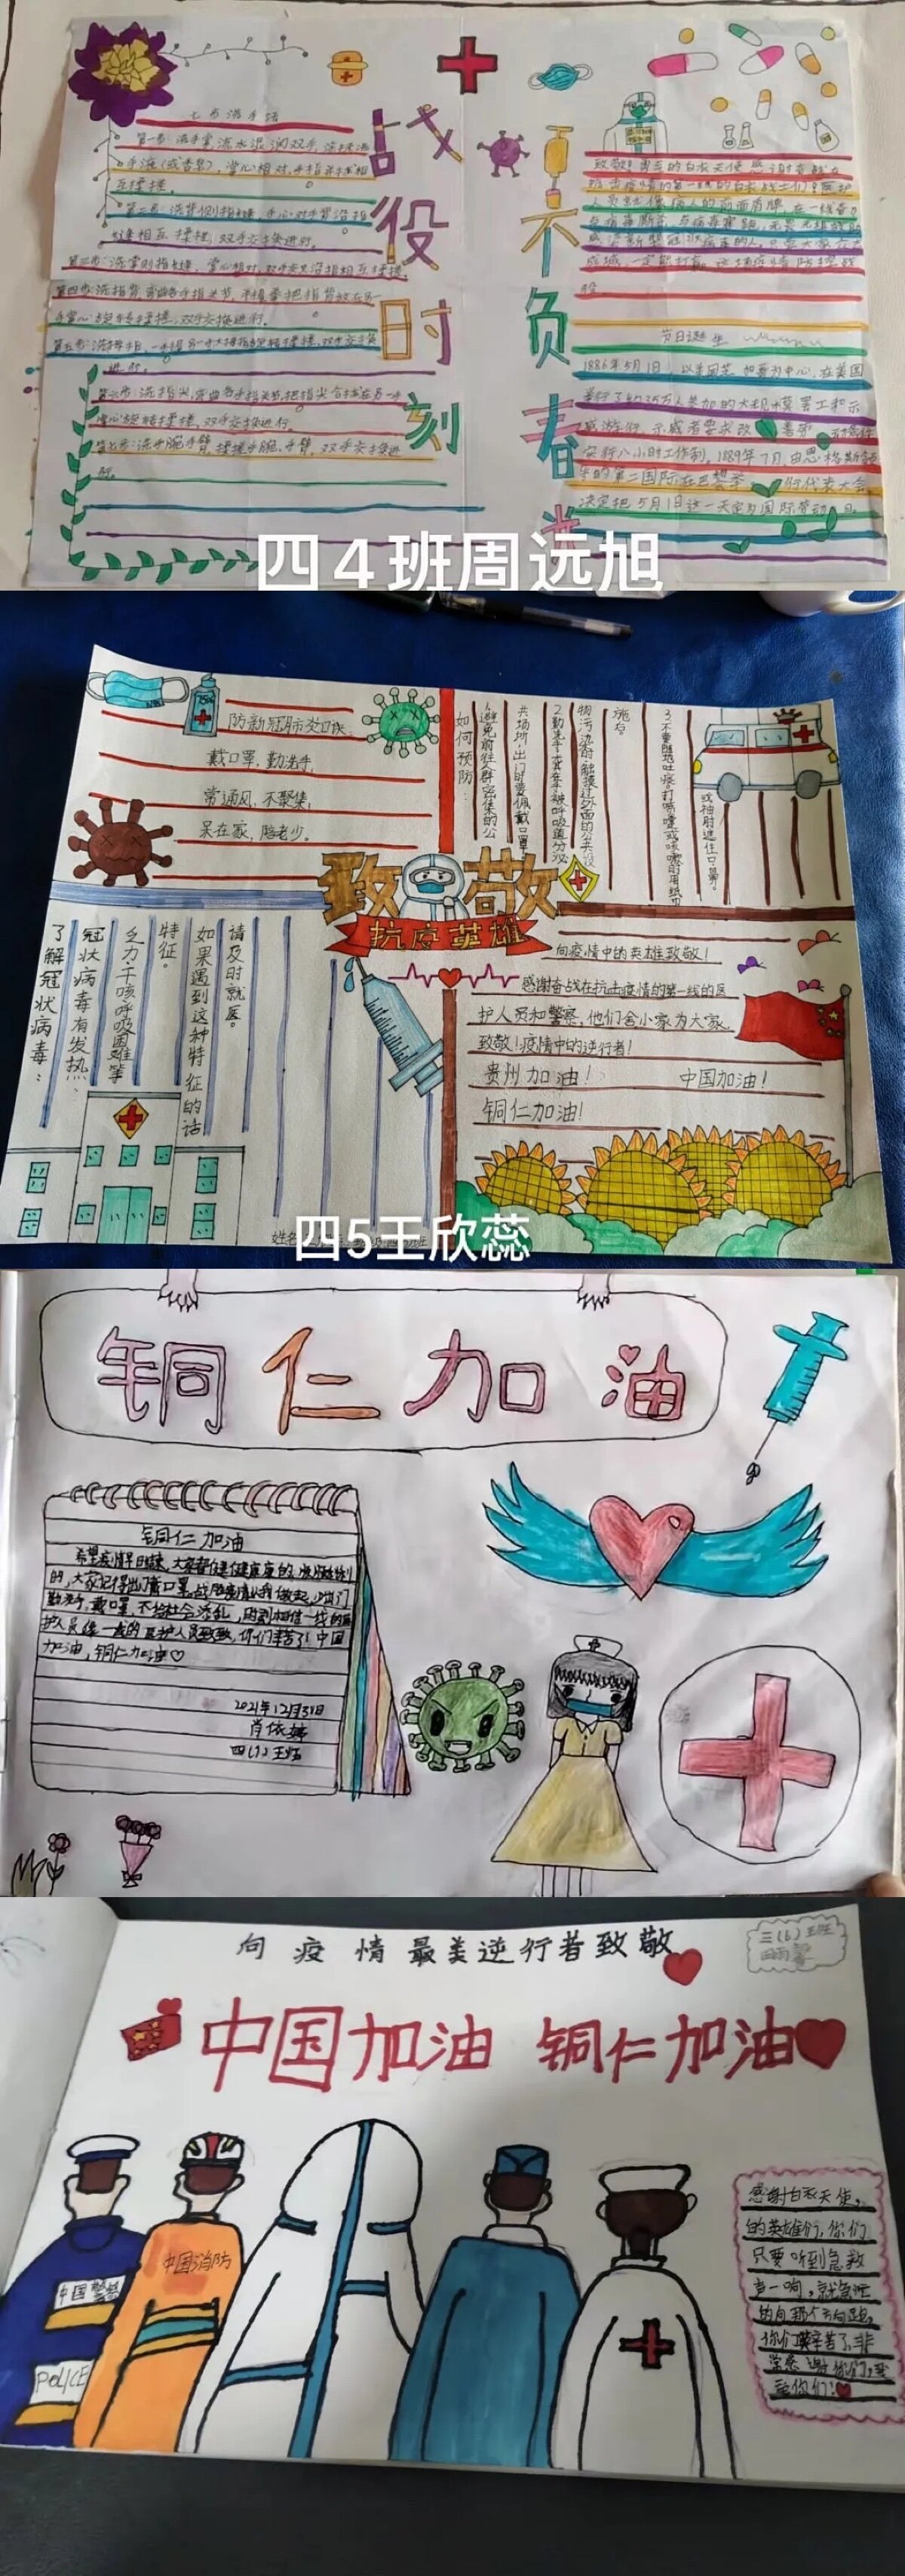 七步洗手法
第一步:洗手掌 流水湿润双手,涂抹洗
手液(或香皂),掌心相对,手指并拢相
互揉搓。
第二步:洗背侧指缝,手心对手背沿指
缝相互揉搓,双手交换进行。
第三步:洗掌侧指缝,掌心相对,双手交叉沿指缝相互揉搓。
第四步:洗指背,弯曲各手指关节,半握拳把指背放在另一
手掌心旋转揉搓,双手交换进行。
第五步:洗拇指,一手握另一手大拇指旋转揉搓,双手交换
进行。
第六步:洗指尖,弯曲各手指关节,把指尖合拢在另一手
掌心旋转揉搓,双手交换进行。
第七步:洗手腕、手臂,揉搓手腕、手臂,双手交换进
行。
战役时刻
不负春光
节日诞生
1886年5月1日,以芝加哥为中心,在美国
举行了约35万人参加的大规模罢工和示
威游行,示威者要求改善劳
实行八小时工作制。1889年7月,由恩格斯
的第二国际在巴黎举行代表大会
决定把5月1日这一天定为国际劳动日。
四4班周远旭
防新冠肺炎口诀
戴口罩,勤洗手,
常通风,不聚集,
呆在家,陪老少。
如何预防:
1.避免前往人群密集的公
共场所,出门时要佩戴口罩
2.勤洗手
物污染时,触摸过外面的公共设
施后。
3.不要随地吐痰,打喷嚏或咳嗽时用纸巾
或袖肘遮住口鼻。
致敬
抗疫英雄
了解冠状病毒:
冠状病毒有发热、
乏力、干咳、呼吸困难等
特征。
如果遇到这种特征的话
请及时就医。
向疫情中的英雄致敬!
感谢奋战在抗击疫情的第一线的医
护人员和警察,他们舍小家为大家,
致敬!疫情中的逆行者!
贵州加油! 中国加油!
铜仁加油!
四5王欣蕊
铜仁加油
铜仁加油
希望疫情早日结束,大家都健健康康的,
的,大家记得出门戴口罩,战胜疫情从我做起,少出门
勤洗手,戴口罩,不给社会添乱,
护人员
加油,铜仁加油♡
2021年12月31日
肖依婷
向疫情最美逆行者致敬
三(6)班
中国加油 铜仁加油
中国警察
POLICE
中国消防
感谢白衣天使,
的英雄们,你们
只要听到急救
声一响,就急忙
的向那个方向跑,
你们辛苦了,非
常感谢你们,